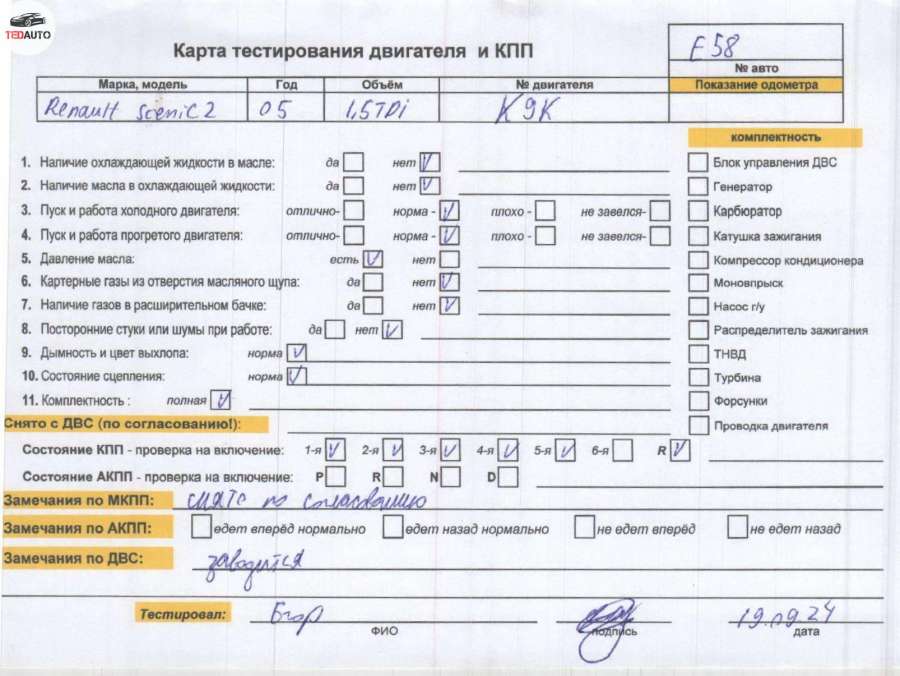 TEDAUTO
Карта тестирования двигателя и КПП
E58
№ авто
Марка, модель Год Объём № двигателя Показание одометра
Renault Scenic 2 05 1,5TDi K9K
комплектность
1. Наличие охлаждающей жидкости в масле: да нет V
Блок управления ДВС
2. Наличие масла в охлаждающей жидкости: да нет V
Генератор
3. Пуск и работа холодного двигателя: отлично- норма - V плохо - не завелся-
Карбюратор
4. Пуск и работа прогретого двигателя: отлично- норма - V плохо - не завелся-
Катушка зажигания
5. Давление масла: есть V нет
Компрессор кондиционера
6. Картерные газы из отверстия масляного щупа: да нет V
Моновпрыск
7. Наличие газов в расширительном бачке: да нет V
Насос г/у
8. Посторонние стуки или шумы при работе: да нет V
Распределитель зажигания
9. Дымность и цвет выхлопа: норма V
ТНВД
10. Состояние сцепления: норма V
Турбина
11. Комплектность : полная V
Форсунки
Снято с ДВС (по согласованию!):
Проводка двигателя
Состояние КПП - проверка на включение: 1-я V 2-я V 3-я V 4-я V 5-я V 6-я R V
Состояние АКПП - проверка на включение: P R N D
Замечания по МКПП: снято по согласованию
Замечания по АКПП: едет вперёд нормально едет назад нормально не едет вперёд не едет назад
Замечания по ДВС: заводится
Тестировал: 19.09.24
ФИО подпись дата